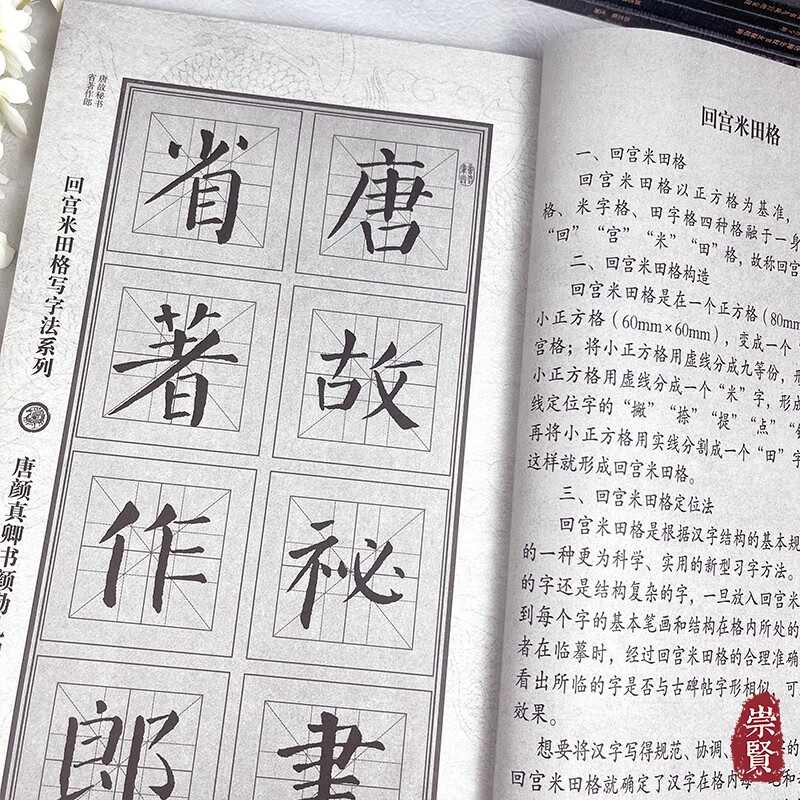 唐故秘书
省著作郎
回宫米田格写字法系列
唐颜真卿书颜勤
唐故祕書
省著作郎
回宫米田格
一、回宫米田格
回宫米田格以正方格为基准，
格、米字格、田字格四种格融于一身
“回”“宫”“米”“田”格，故称回宫
二、回宫米田格构造
回宫米田格是在一个正方格（80mm
小正方格（60mm×60mm），变成一个“
宫格；将小正方格用虚线分成九等份，形
小正方格用虚线分成一个“米”字，形成
线定位字的“撇”“捺”“提”“点”“
再将小正方格用实线分割成一个“田”字
这样就形成回宫米田格。
三、回宫米田格定位法
回宫米田格是根据汉字结构的基本规
的一种更为科学、实用的新型习字方法。
的字还是结构复杂的字，一旦放入回宫米
到每个字的基本笔画和结构在格内所处的
者在临摹时，经过回宫米田格的合理准确
看出所临的字是否与古碑帖字形相似，可
效果。
想要将汉字写得规范、协调、
的
回宫米田格就确定了汉字在格内每一
崇賢